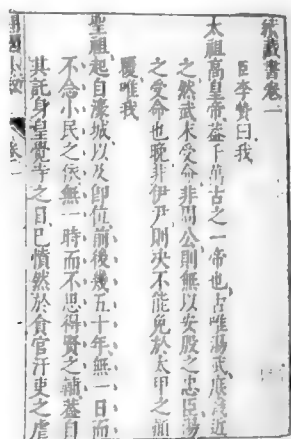 續藏書卷一
臣李贄曰我
太祖高皇帝蓋千萬古之一帝也古唯湯武庶幾近
之然武未受命非周公則無以安殷之忠臣湯
之受命也晚非伊尹則決不能免於太甲之顛
覆唯我
聖祖起自濠城以及卽位前後幾五十年無一日而
不念小民之依無一時而不思得賢之輔蓋自
其託身皇覺寺之日已憤然於貪官汙吏之虐